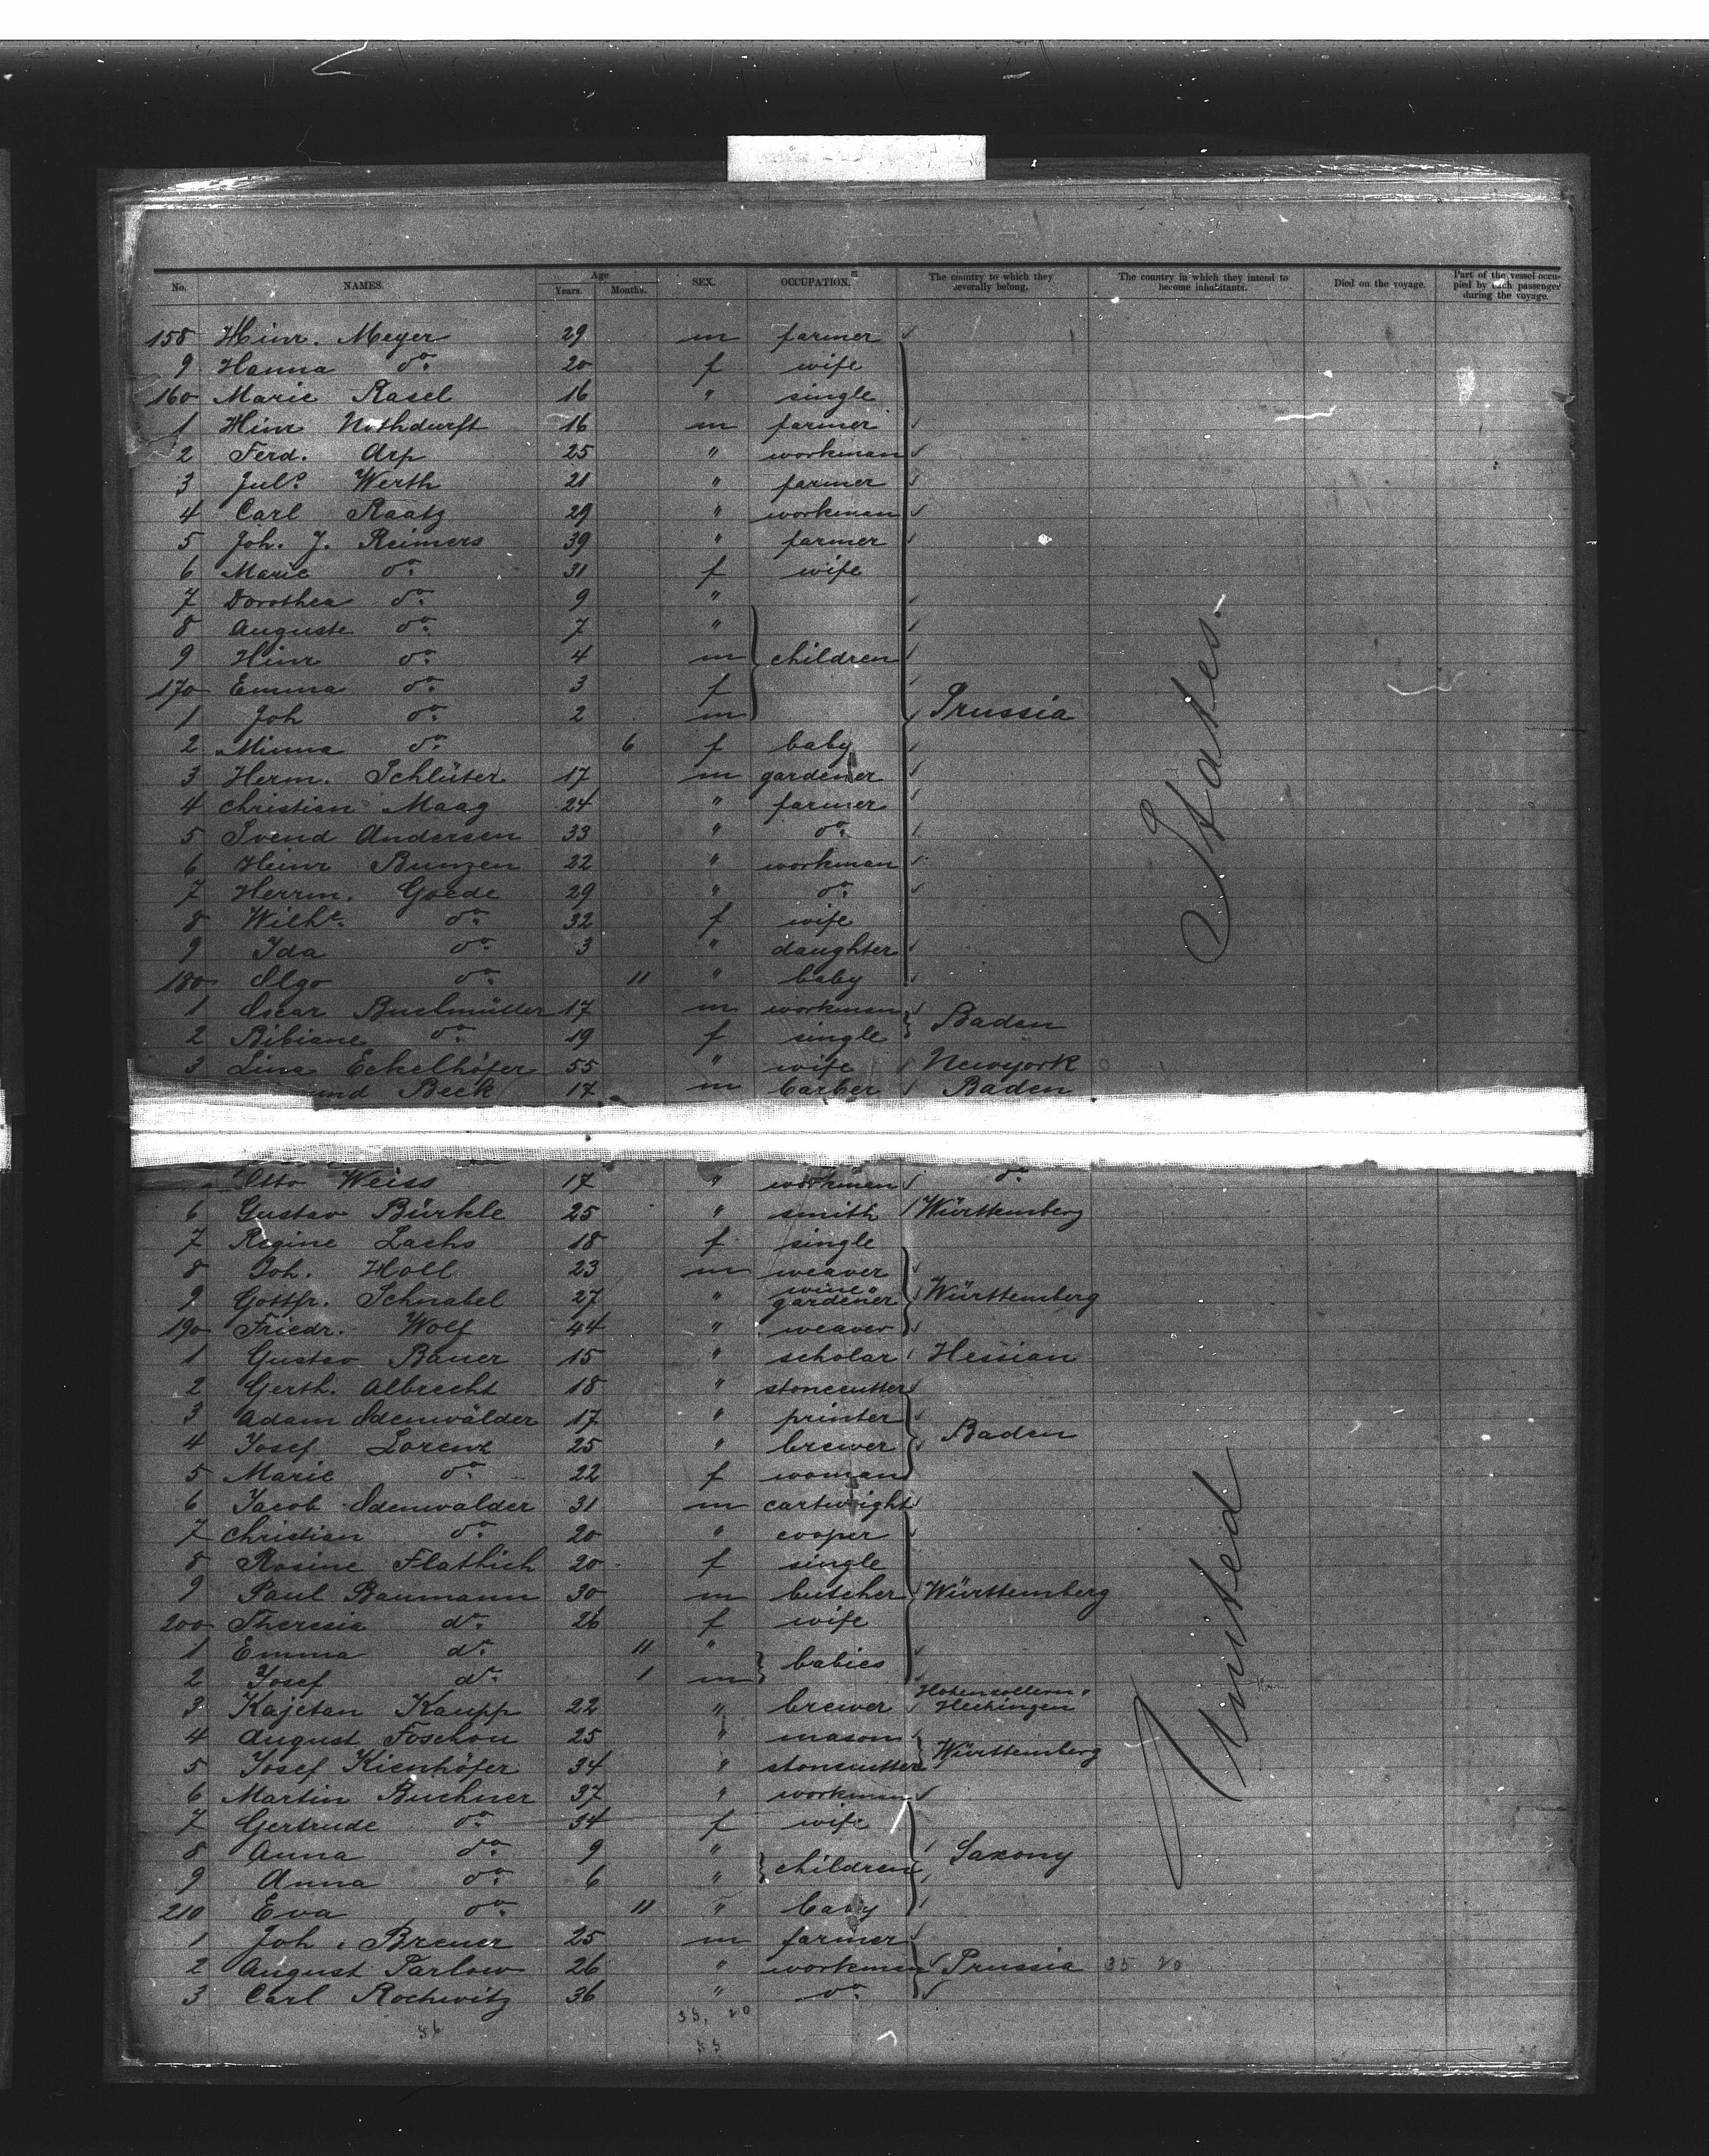 No. NAMES. Age Years. Months. SEX. OCCUPATION. The country to which they severally belong. The country in which they intend to become inhabitants. Died on the voyage. Part of the vessel occupied by each passenger during the voyage.
158 Hinr. Meyer 29 m farmer
9 Hanna do. 20 f wife
160 Marie Rasel 16 " single
1 Hinr Nothdurft 16 m farmer
2 Ferd. Arp 25 " workman
3 Jul. Werth 21 " farmer
4 Carl Raatz 29 " workman
5 Joh. J. Reimers 39 " farmer
6 Marie do. 31 f wife
7 Dorothea do. 9 "
8 Auguste do. 7 "
9 Hinr do. 4 m children
170 Emma do. 3 f
1 Joh do. 2 m Prussia
2 Minna do. 6 f baby
3 Herm. Schlüter 17 m gardener
4 Christian Maag 24 " farmer
5 Svend Andersen 33 " do.
6 Heinr Bunzen 22 " workman
7 Herrm. Goede 29 " do.
8 Wilhe. do. 32 f wife
9 Ida do. 3 " daughter
180 Olga do. 11 " baby
1 Oscar Buchmüller 17 m workman
2 Bibiane do. 19 f single Baden
3 Lina Eckelhöfer 55 " wife Newyork
und Beck 17 m barber Baden
Otto Weiss 17 " workman do.
6 Gustav Bürkle 25 " smith Württemberg
7 Regine Lachs 18 f single
8 Joh. Holl 23 m weaver
9 Gottfr. Schnabel 27 " wine gardener Württemberg
190 Friedr. Wolf 44 " weaver
1 Gustav Bauer 15 " scholar Hessian
2 Gerth. Albrecht 18 " stonecutter
3 Adam Odenwälder 17 " printer
4 Josef Lorenz 25 " brewer Baden
5 Marie do. 22 f woman
6 Jacob Odenwalder 31 m cartwright
7 Christian do. 20 " cooper
8 Rosine Flathich 20 f single
9 Paul Baumann 30 m butcher Württemberg
200 Theresia do. 26 f wife
1 Emma do. 11 "
2 Josef do. 1 m babies
3 Kajetan Kaupp 22 " brewer Hohenzollern Hechingen
4 August Foschon 25 " mason
5 Josef Kienhöfer 34 " stonecutter Württemberg
6 Martin Buchner 37 " workman
7 Gertrude do. 34 f wife
8 Anna do. 9 " Saxony
9 Anna do. 6 " children
210 Eva do. 11 " baby
1 Joh. Breuer 25 m farmer
2 August Parlow 26 " workman Prussia 35 20
3 Carl Rochwitz 36 " do.
35, 20
56
55
United States.